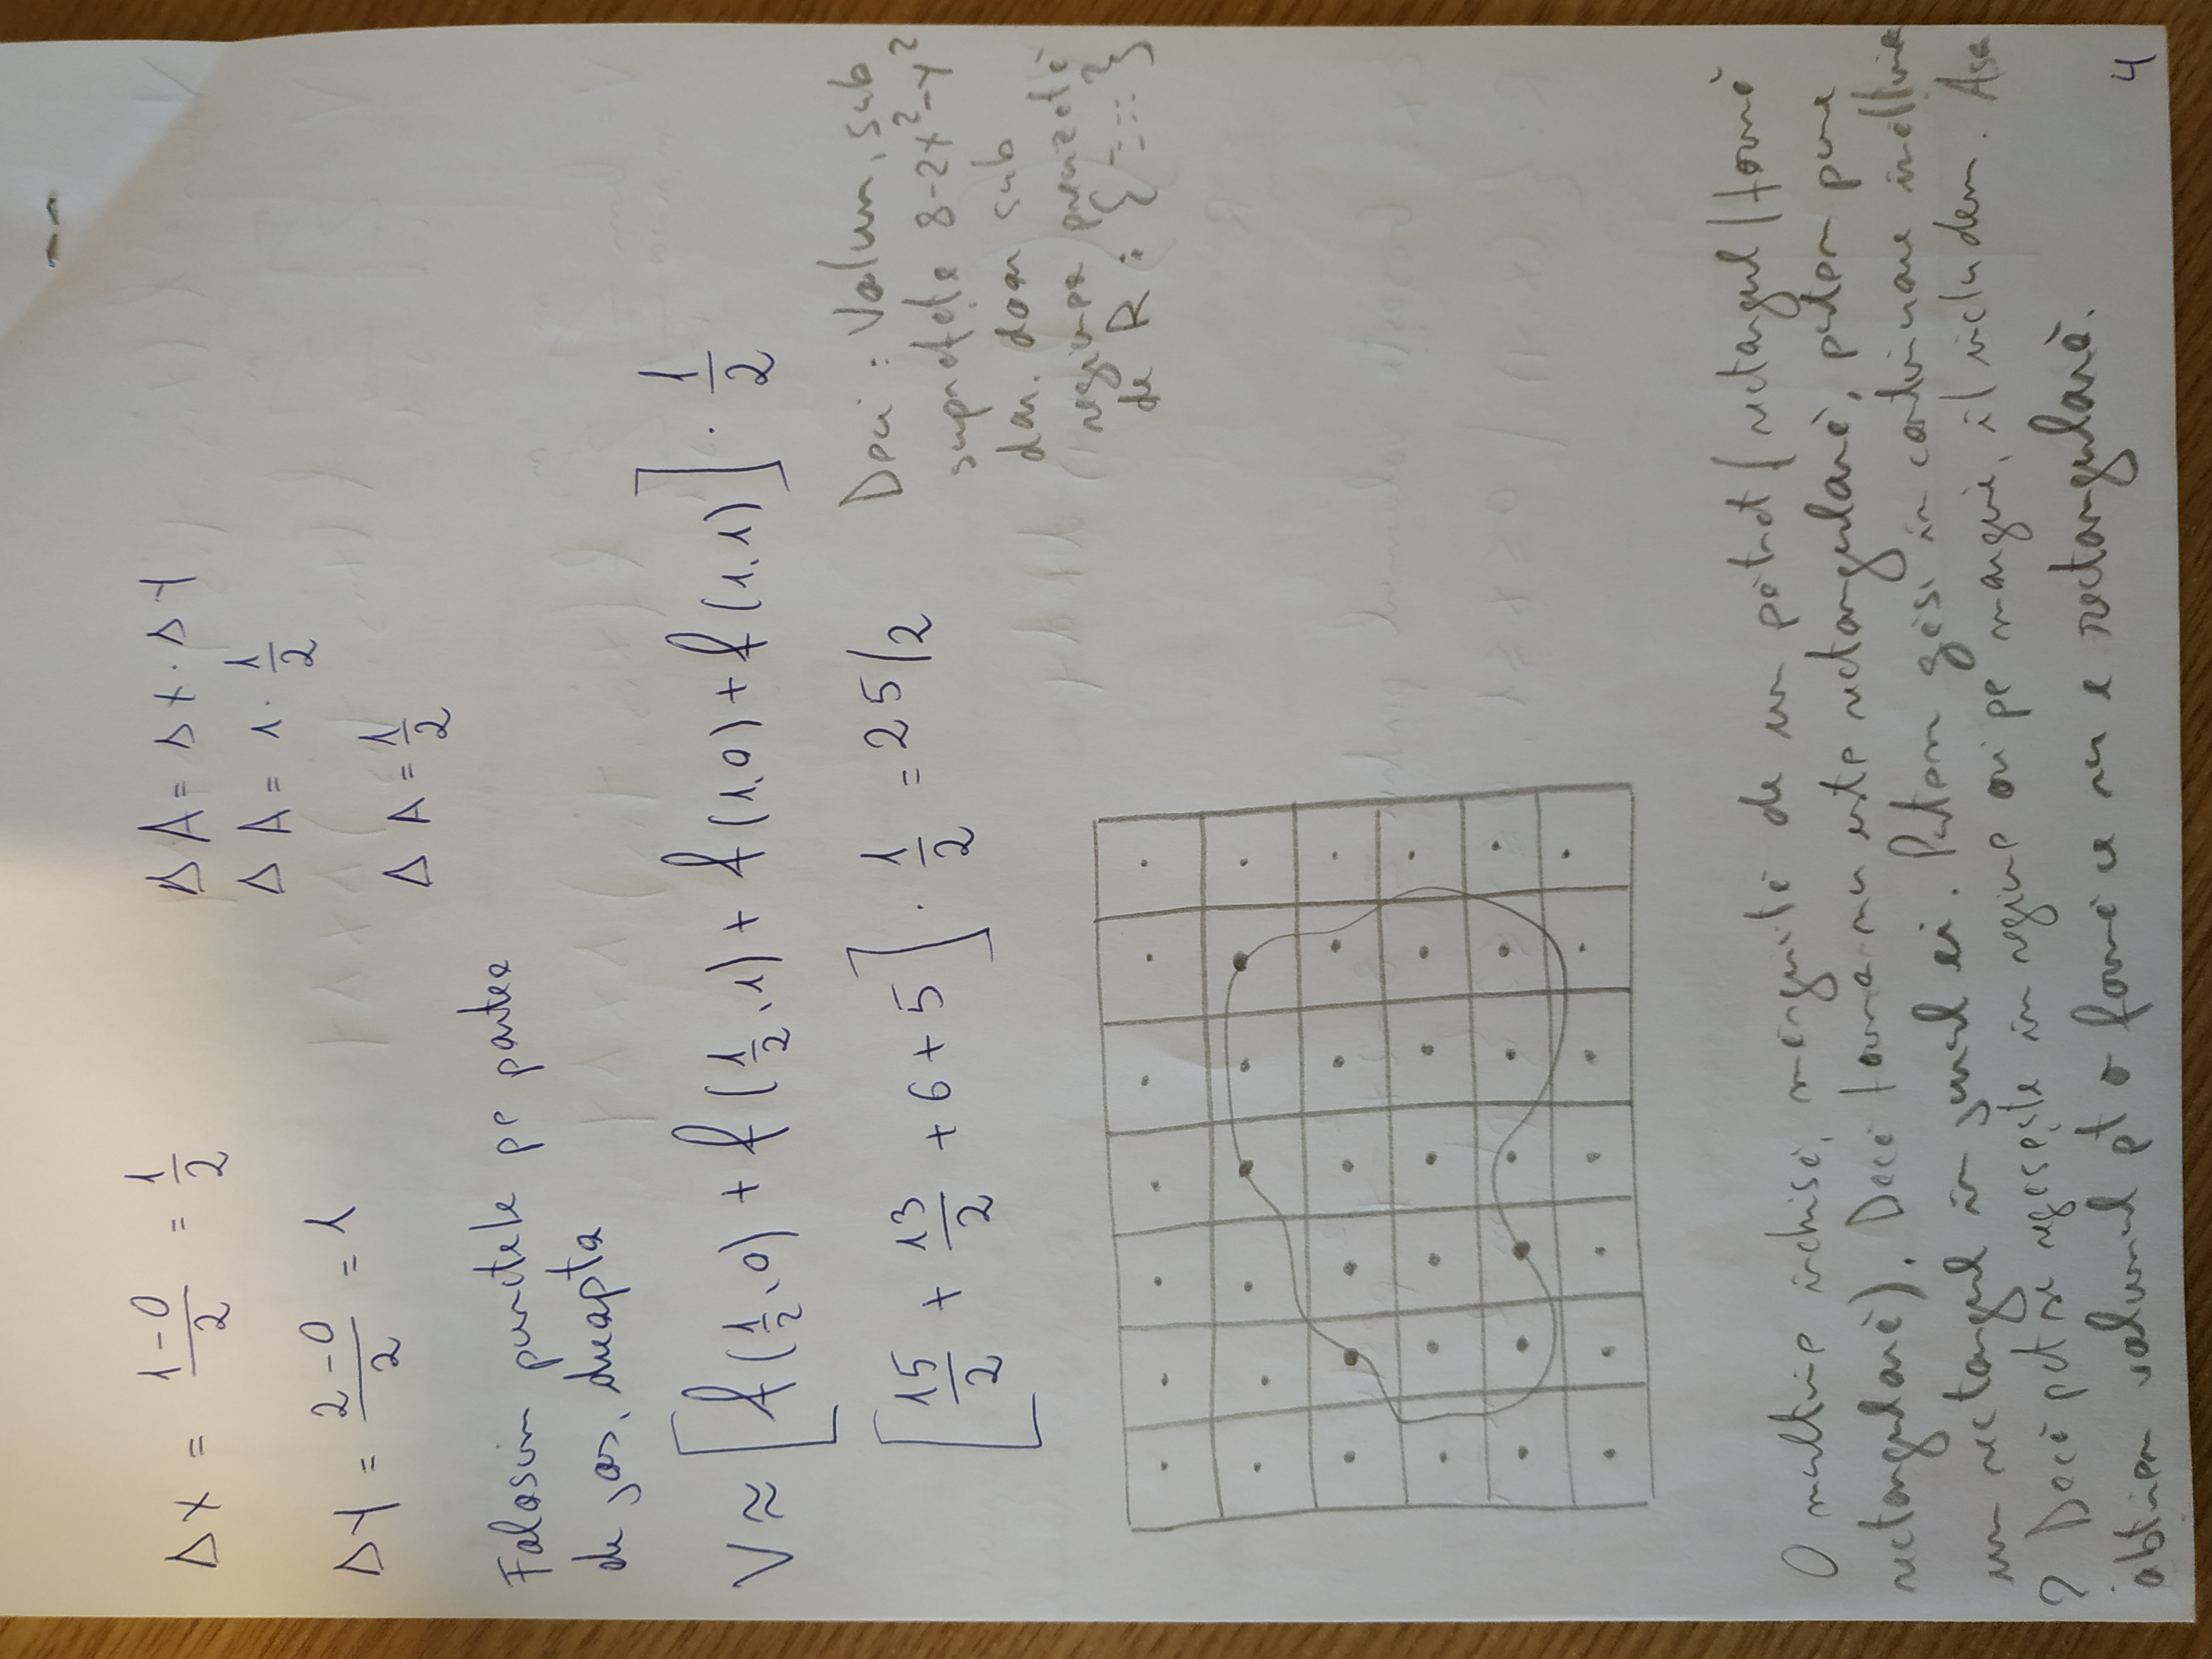 Δx = (1-0)/2 = 1/2
ΔA = Δx · Δy
ΔA = 1 · 1/2
Δy = (2-0)/2 = 1
ΔA = 1/2
Folosim punctele pe partea
de jos, dreapta
V ≈ [f(1/2, 0) + f(1/2, 1) + f(1,0) + f(1,1)] · 1/2
[15/2 + 13/2 + 6 + 5] · 1/2 = 25/2
Deci : Volum, sub
suprafețe 8-2x²-y²
dar. doar sub
regiunea precizată
de R : { }
O mulțime închisă, mărginită de un pătrat (rectangul / formă
rectangulară). Dacă forma nu este rectangulară, putem pune
un rectangul în jurul ei. Putem găsi în continuare înălțimea
? Dacă pct se regăsește în regiune ori pe margine, îl includem. Așa
obținem volumul pt o formă ce nu e rectangulară.
4